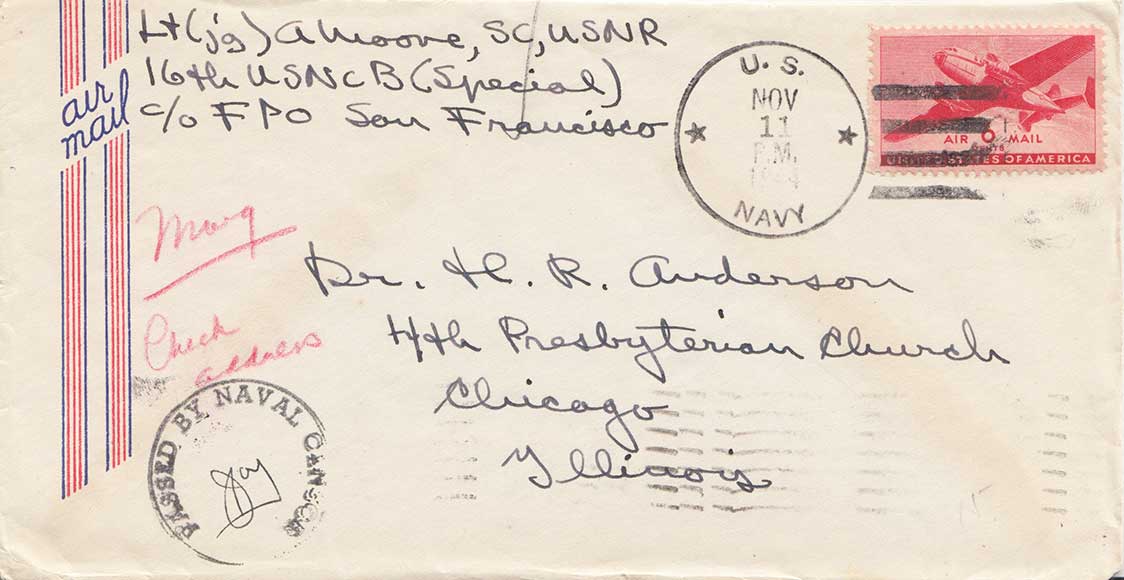 Lt(jg) A Moore, SC, USNR
16th USNCB (Special)
c/o FPO San Francisco
air
mail
U. S.
NOV
11
P.M.
NAVY
AIR 6 MAIL
CENTS
UNITED STATES OF AMERICA
Marg
Check
address
Dr. H. R. Anderson
4th Presbyterian Church
Chicago
Illinois
PASSED BY NAVAL CENSOR